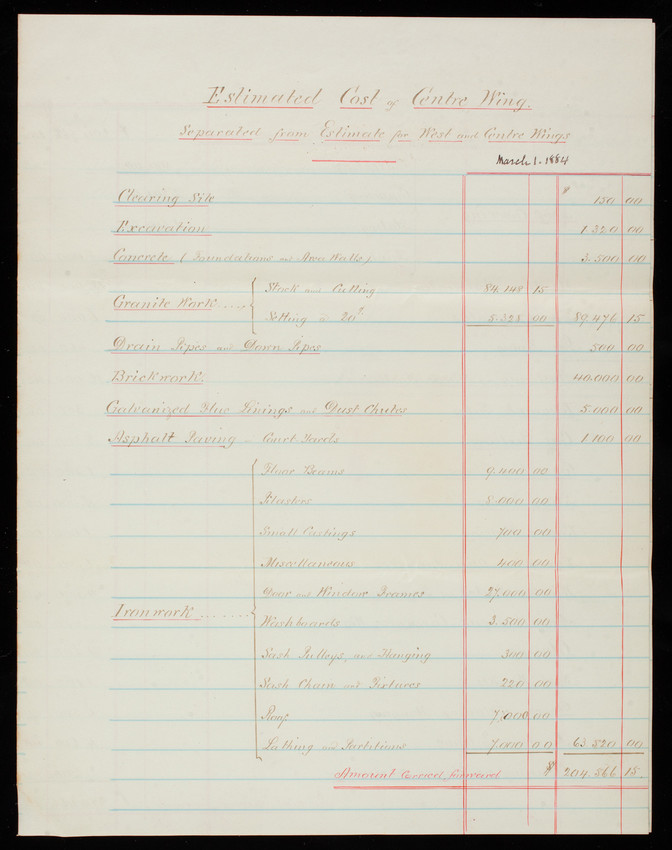 Estimated Cost of Centre Wing.
Separated from Estimate for West and Centre Wings
March 1. 1884
Clearing Site $ 150 00
Excavation 1.320 00
Concrete (Foundations and Area Walls) 3.500 00
Stock and Cutting 84.148 15
Granite Work ....
Setting 5.328 00 89,476 15
Drain Pipes and Down Pipes 500 00
Brickwork. 40.000 00
Galvanized Flue Linings and Dust Chutes 5.000 00
Asphalt Paving - Court Yards 1.100 00
Floor Beams 9.400 00
Pilasters 8.000 00
Small Castings 700 00
Miscellaneous 400 00
Door and Window Frames 27.000 00
Ironwork .......
Washboards 3.500 00
Sash Pulleys, and Hanging 300 00
Sash Chain and Fixtures 220 00
Roof 7.000 00
Lathing and Partitions 7.000 00 63 520 00
Amount Carried forward $ 204.566 15